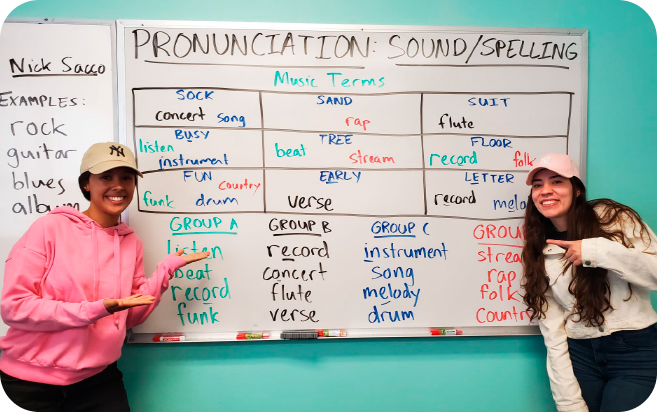 Nick Sacco
EXAMPLES:
rock
guitar
blues
album
PRONUNCIATION: SOUND/SPELLING
Music Terms
SOCK SAND SUIT
concert song rap flute
BUSY TREE FLOOR
listen instrument beat stream record folk
FUN EARLY LETTER
country
funk drum verse record
GROUP A GROUP B GROUP C
listen record instrument
beat concert song rap
record flute melody folk
funk verse drum Country